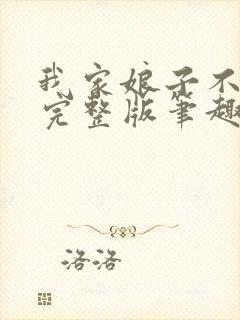 我家娘子不
完整版笔趣
洛洛